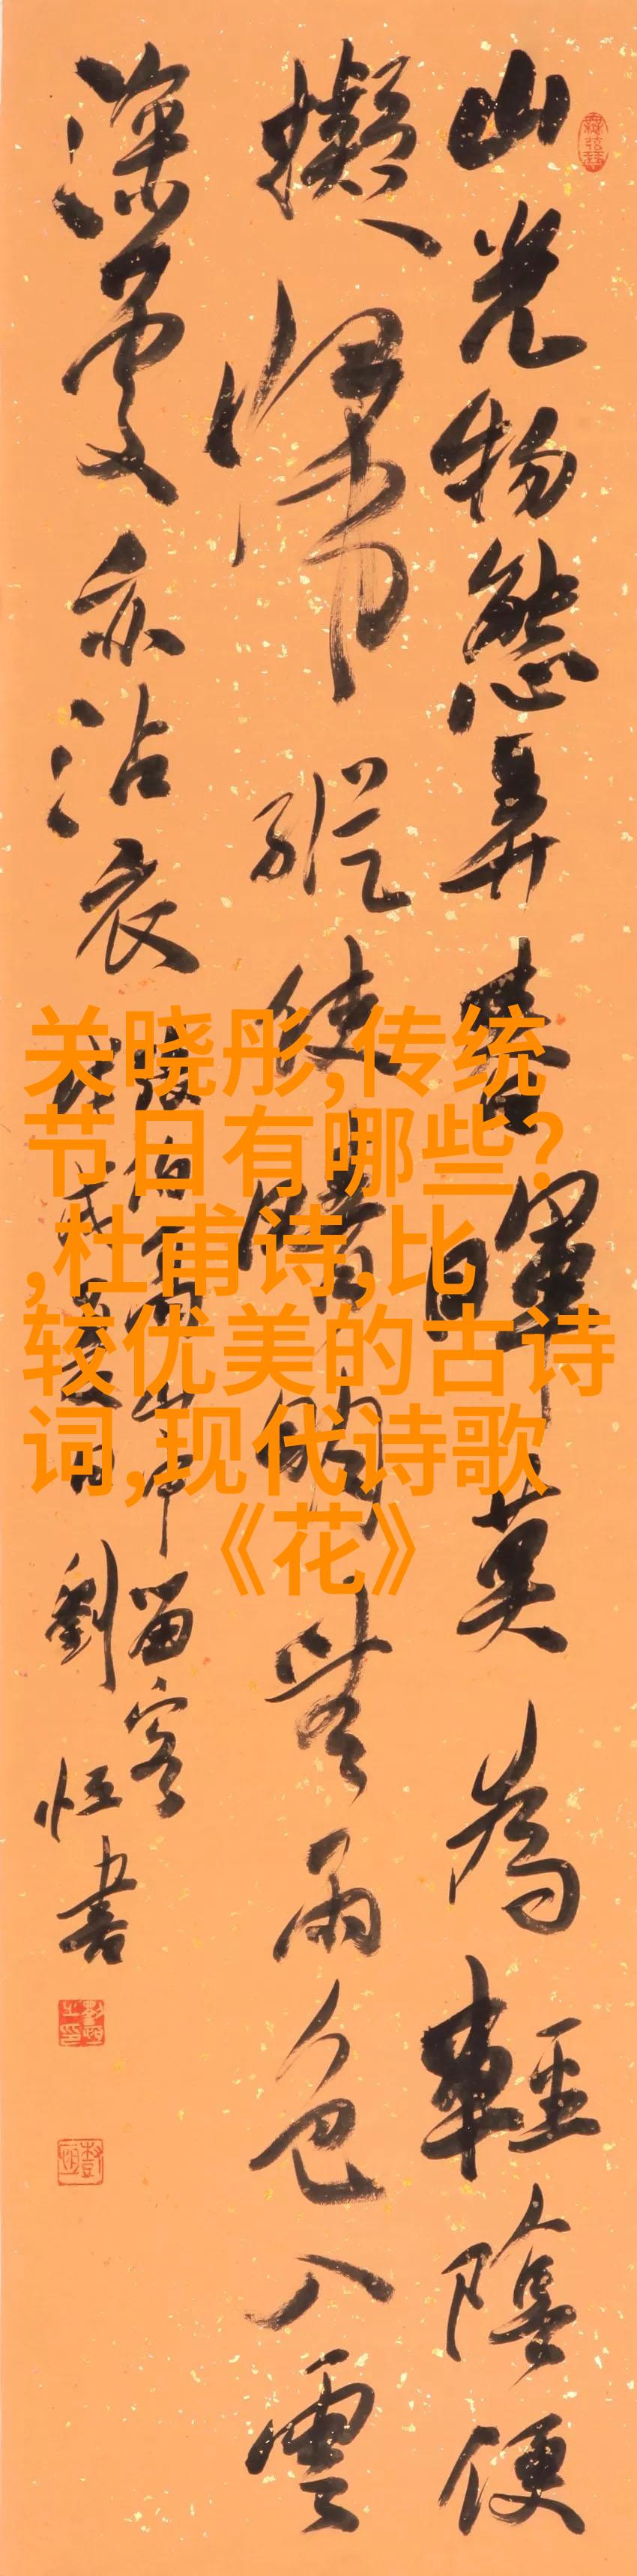 山光物態弄春暉莫為輕陰便
擬歸縱使晴明無雨色入雲
深處亦沾衣
山中留客
劉恒書
关晓彤,传统
节日有哪些?
,杜甫诗,比
较优美的古诗
词,现代诗歌
《花》